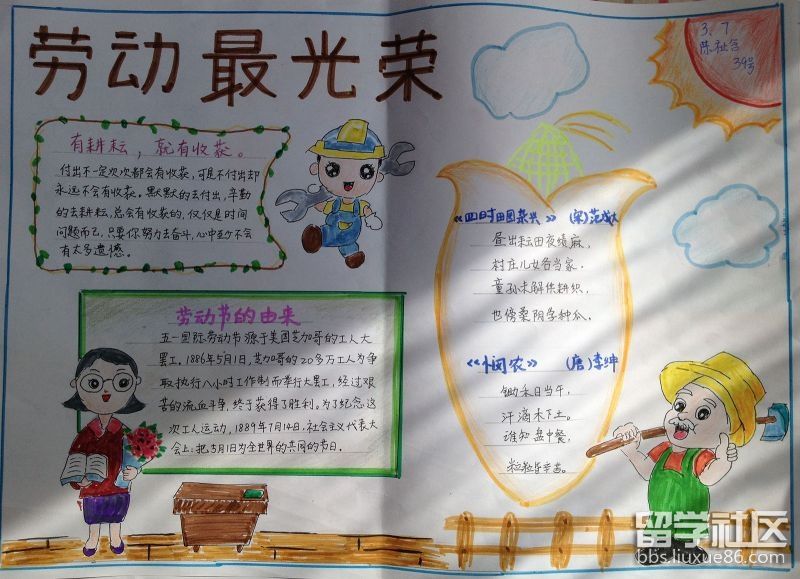 劳动最光荣
3.7
39号
有耕耘，就有收获。
付出不一定次次都会有收获，可是不付出却
永远不会有收获。默默的去付出，辛勤
的去耕耘，总会有收获的，仅仅是时间
问题而已，只要你努力去奋斗，心中至少不会
有太多遗憾。
劳动节的由来
五一国际劳动节源于美国芝加哥的工人大
罢工。1886年5月1日，芝加哥的20多万工人为争
取执行八小时工作制而举行大罢工，经过艰
苦的流血斗争，终于获得了胜利。为了纪念这
次工人运动，1889年7月14日，社会主义代表大
会上：把5月1日为全世界的共同的节日。
《四时田园杂兴》 (宋)范成大
昼出耘田夜绩麻，
村庄儿女各当家。
童孙未解供耕织，
也傍桑阴学种瓜。
《悯农》 (唐)李绅
锄禾日当午，
汗滴禾下土。
谁知盘中餐，
粒粒皆辛苦。
留学社区
bbs.liuxue86.com